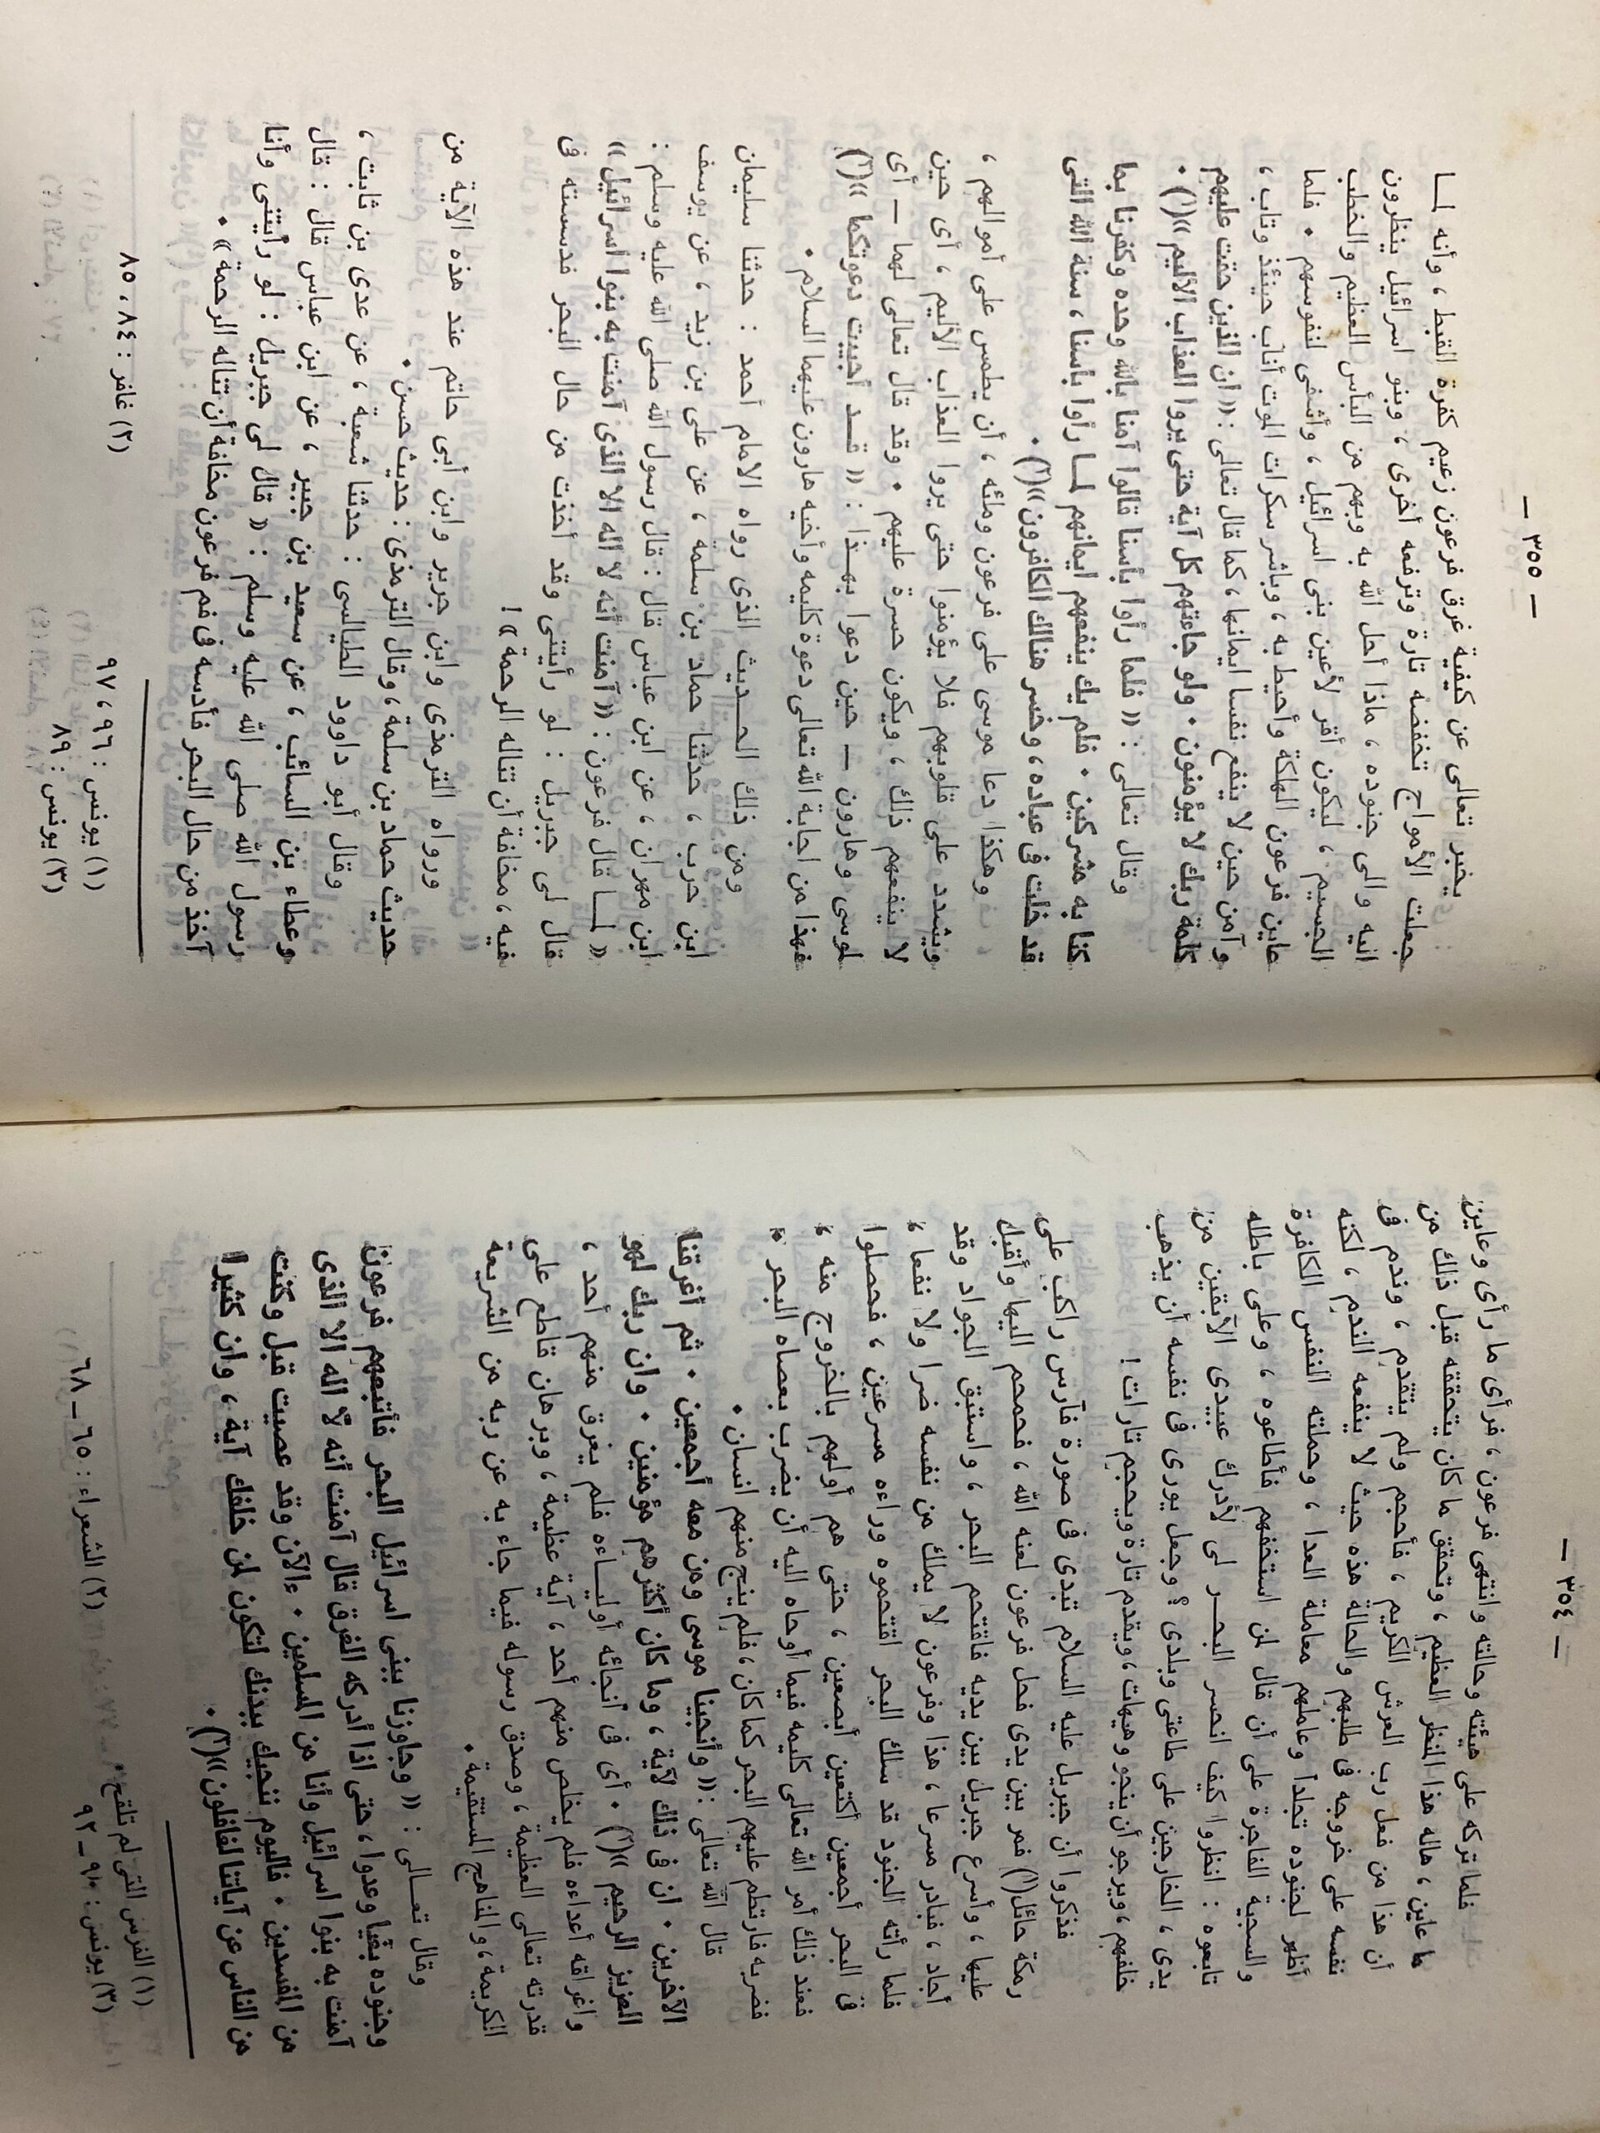 — ٣٥٤ —
فلما تركه على هيئته وحالته وانتهى فرعون ، فرأى ما رأى وعاين
ما عاين ، هاله هذا المنظر العظيم ، وتحقق ما كان يتحققه قبل ذلك من
أن هذا من فعل رب العرش الكريم ، فأحجم ولم يتقدم ، وندم فى
نفسه على خروجه فى طلبهم والحالة هذه حيث لا ينفعه الندم ، لكنه
أظهر لجنوده تجلداً وعاملهم معاملة العدا ، وحملته النفس الكافرة
والسجية الفاجرة على أن قال لمن استخفهم فأطاعوه ، وعلى باطله
تابعوه : انظروا كيف انحسر البحــر لى لأدرك عبيدى الآبقين من
يدى ، الخارجين على طاعتى وبلدى ؟ وجعل يورى فى نفسه أن يذهب
خلفهم ، ويرجو أن ينجو وهيهات ، ويقدم تارة ويحجم تارات !
فذكروا أن جبريل عليه السلام تبدى فى صورة فارس راكب على
رمكة حائل(١) فمر بين يدى فحل فرعون لعنه الله ، فحمحم اليها وأقبل
عليها ، وأسرع جبريل بين يديه فاقتحم البحر ، واستبق الجواد وقد
أجاد ، فبادر مسرعا ، هذا وفرعون لا يملك من نفسه ضرا ولا نفعا ،
فلما رأته الجنود قد سلك البحر اقتحموه وراءه مسرعين ، فحصلوا
فى البحر أجمعين أكتعين أبصعين ، حتى هم أولهم بالخروج منه ،
فعند ذلك أمر الله تعالى كليمه فيما أوحاه اليه أن يضرب بعصاه البحر .
فضربه فارتطم عليهم البحر كما كان ، فلم ينج منهم انسان .
قال الله تعالى : « وأنجينا موسى ومن معه أجمعين . ثم أغرقنا
الآخرين . ان فى ذلك لآية ، وما كان أكثرهم مؤمنين . وان ربك لهو
العزيز الرحيم »(٢) . أى فى أنجائه أوليــاءه فلم يغرق منهم أحد ،
واغراقه أعداءه فلم يخلص منهم أحد ، آية عظيمة ، وبرهان قاطع على
قدرته تعالى العظيمة ، وصدق رسوله فيما جاء به عن ربه من الشريعة
الكريمة ، والمناهج المستقيمة .
وقال تعــالى : « وجاوزنا ببنى اسرائيل البحر فأتبعهم فرعون
وجنوده بغيا وعدوا ، حتى اذا أدركه الغرق قال آمنت أنه لا اله الا الذى
آمنت به بنوا اسرائيل وأنا من المسلمين . ءالآن وقد عصيت قبل وكنت
من المفسدين . فاليوم ننجيك ببدنك لتكون لمن خلفك آية ، وان كثيرا
من الناس عن آياتنا لغافلون»(٣) .
(١) الفرس التى لم تلقح .
(٢) الشعراء : ٦٥ ــ ٦٨
(٣) يونس : ٩٠ ــ ٩٢
— ٣٥٥ —
يخبر تعالى عن كيفية غرق فرعون زعيم كفرة القبط ، وأنه لمــا
جعلت الأمواج تخفضه تارة وترفعه أخرى ، وبنو اسرائيل ينظرون
اليه والى جنوده ، ماذا أحل الله به وبهم من البأس العظيم والخطب
الجسيم ، ليكون أقر لأعين بنى اسرائيل ، وأشفى لنفوسهم . فلما
عاين فرعون الهلكة وأحيط به ، وباشر سكرات الموت أناب حينئذ وتاب ،
وآمن حين لا ينفع نفسا ايمانها ، كما قال تعالى : « ان الذين حقت عليهم
كلمة ربك لا يؤمنون . ولو جاءتهم كل آية حتى يروا العذاب الأليم »(١) .
وقال تعالى : « فلما رأوا بأسنا قالوا آمنا بالله وحده وكفرنا بما
كنا به مشركين . فلم يك ينفعهم ايمانهم لمــا رأوا بأسنا ، سنة الله التى
قد خلت فى عباده ، وخسر هنالك الكافرون »(٢) .
وهكذا دعا موسى على فرعون وملئه ، أن يطمس على أموالهم ،
ويشدد على قلوبهم فلا يؤمنوا حتى يروا العذاب الأليم ، أى حين
لا ينفعهم ذلك ، ويكون حسرة عليهم . وقد قال تعالى لهما — أى
لموسى وهارون — حين دعوا بهــذا : « قــد أجيبت دعوتكما »(٣)
فهذا من اجابة الله تعالى دعوة كليمه وأخيه هارون عليهما السلام .
ومن ذلك الحــديث الذى رواه الامام أحمد : حدثنا سليمان
ابن حرب ، حدثنا حماد بن سلمة ، عن على بن زيد ، عن يوسف
ابن مهران ، عن ابن عباس قال : قال رسول الله صلى الله عليه وسلم :
« لمــا قال فرعون : « آمنت أنه لا اله الا الذى آمنت به بنوا اسرائيل »
قال لى جبريل : لو رأيتنى وقد أخذت من حال البحر فدسسته فى
فيه ، مخافة أن تناله الرحمة » !
ورواه الترمذى وابن جرير وابن أبى حاتم عند هذه الآية من
حديث حماد بن سلمة ، وقال الترمذى : حديث حسن .
وقال أبو داوود الطيالسى : حدثنا شعبة ، عن عدى بن ثابت ،
وعطاء بن السائب ، عن سعيد بن جبير ، عن ابن عباس قال : قال
رسول الله صلى الله عليه وسلم : « قال لى جبريل : لو رأيتنى وأنا
آخذ من حال البحر فأدسه فى فم فرعون مخافة أن تناله الرحمة» .
(١) يونس : ٩٦ ، ٩٧
(٢) غافر : ٨٤ ، ٨٥
(٣) يونس : ٨٩